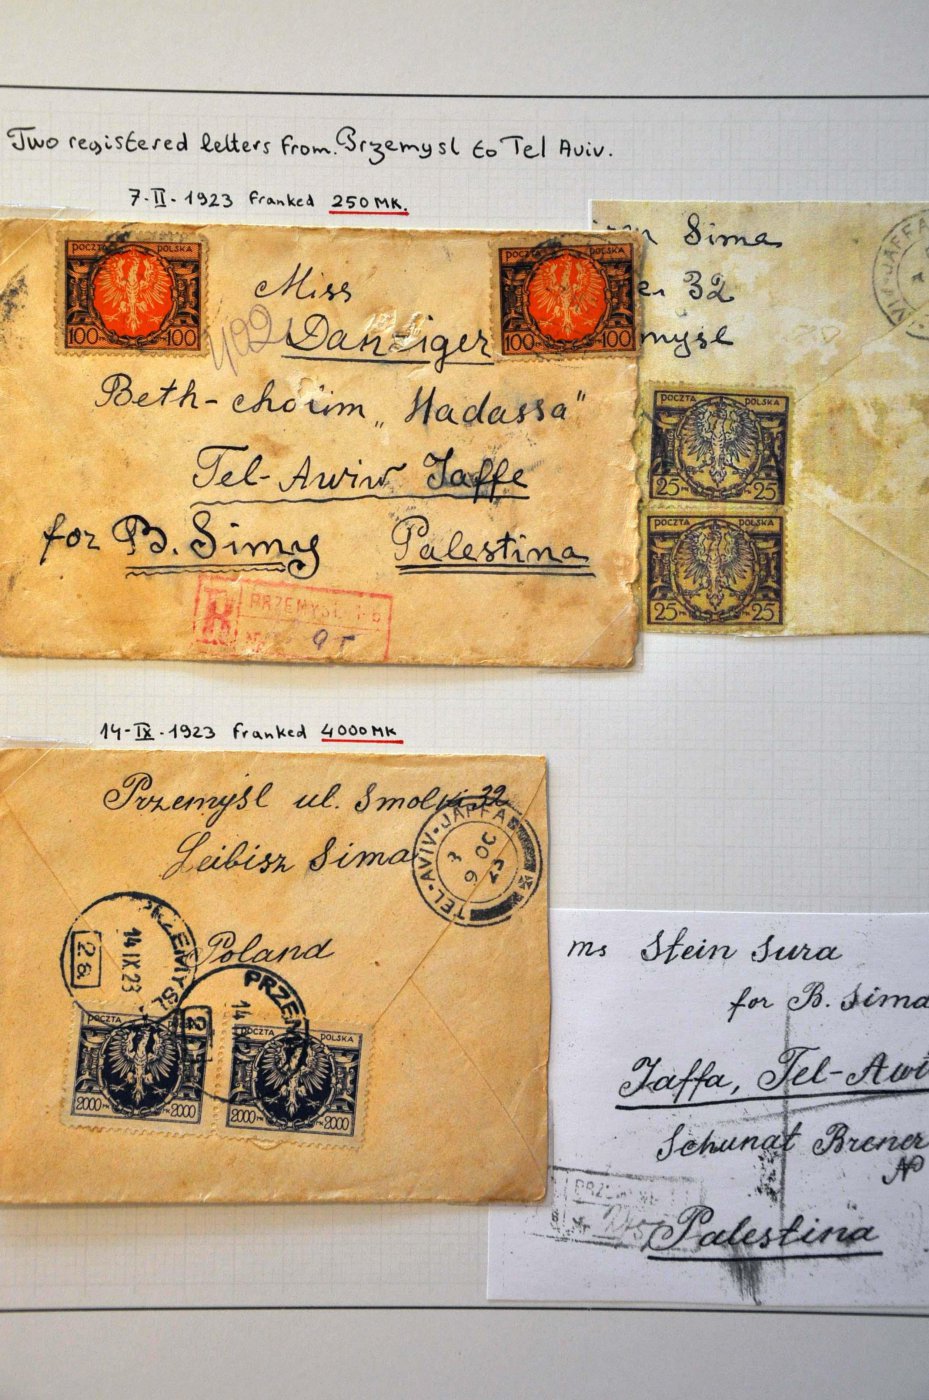 Two registered letters from Przemysl to Tel Aviv.
7-II-1923 franked 250 MK.
POCZTA POLSKA
100 100
POCZTA POLSKA
100 100
Miss
Danziger
402
Beth-choim „Hadassa"
Tel-Awiw Jaffe
for B. Simy Palestina
R PRZEMYŚL 1
95
Sima
32
mysl
JAFFA
POCZTA POLSKA
25 25
POCZTA POLSKA
25 25
14-IX-1923 franked 4000 MK
Przemyśl ul. Smolki 32
Leibisz Sima
Poland
TEL-AVIV-JAFFA
9 OC 23
PRZEMYŚL
14 IX 23
2a
PRZEM
14
POCZTA POLSKA
2000 2000
POCZTA POLSKA
2000 2000
ms Stein Sura
for B. Sima
Jaffa, Tel-Awi
Schunat Brener
No
Palestina